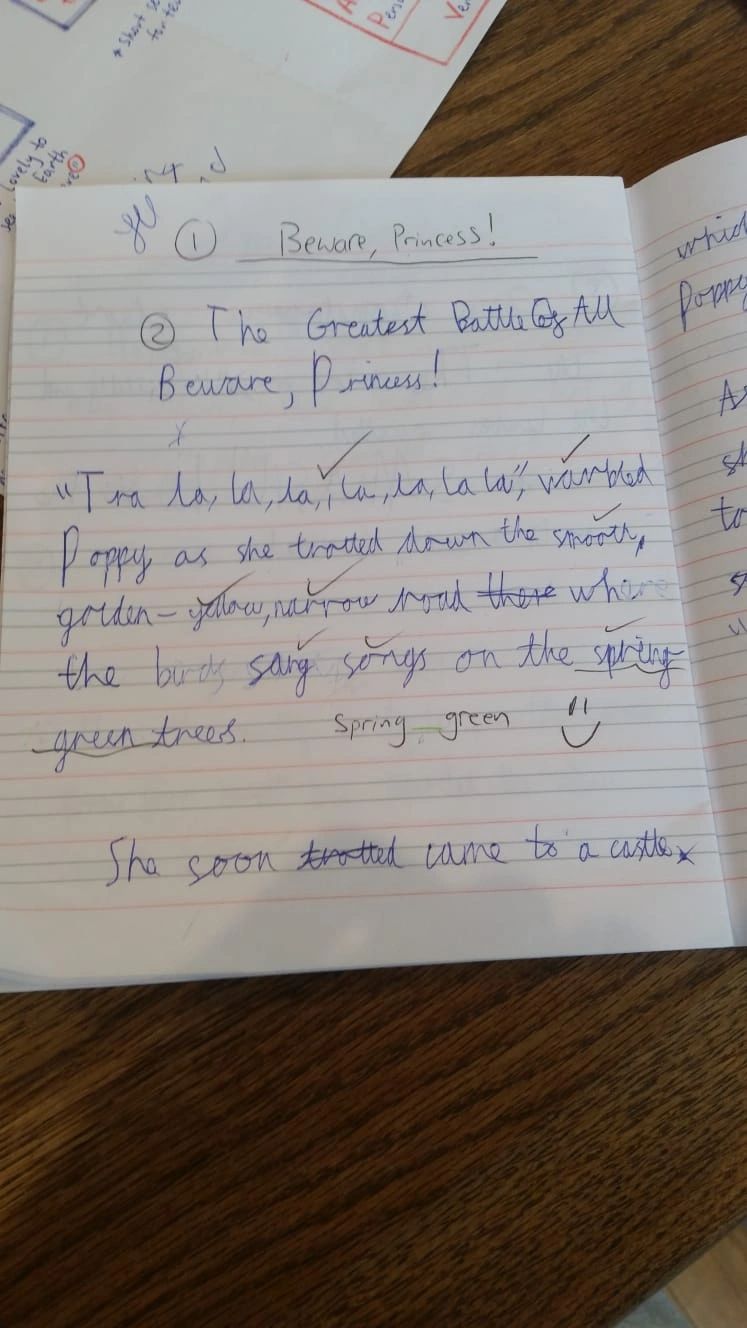 * Short se
for ten
Pers
Ve
Lovely to
Earth
① Beware, Princess!
② The Greatest Battle Of All
Beware, Princess!
x
"Tra la, la, la, la, la, la la", warbled
Poppy as she trotted down the smooth,
golden-yellow, narrow road there where
the birds sang songs on the spring
green trees. Spring green
She soon trotted came to a castle
whic
Poppy
As
sh
to